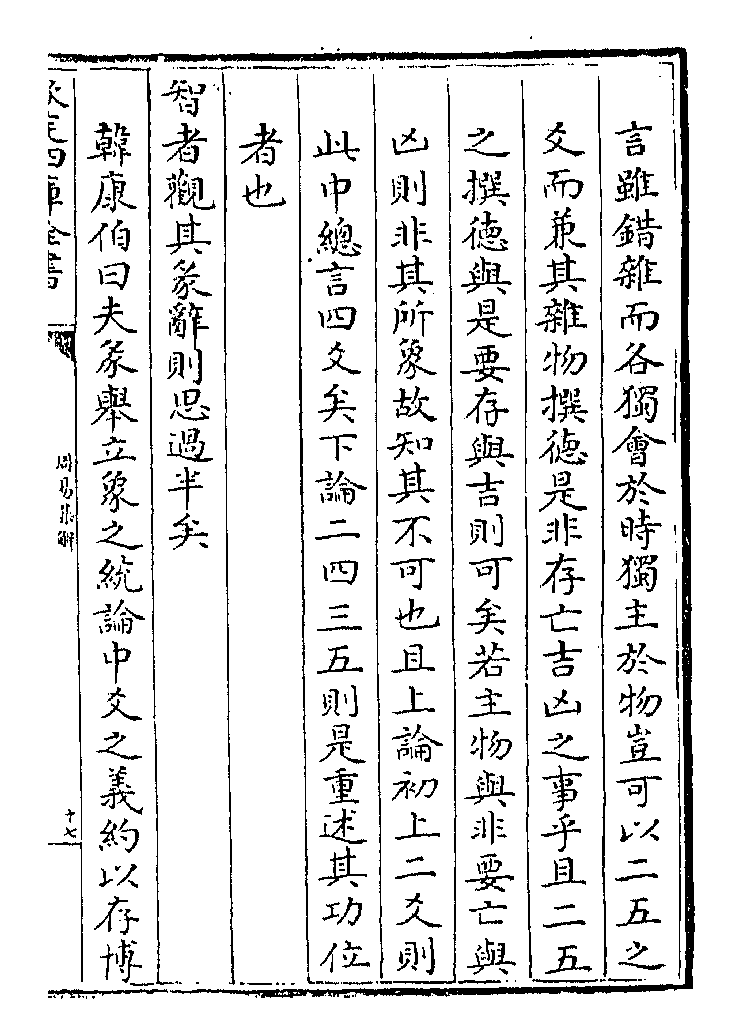 言雖錯雜而各獨會於時獨主於物豈可以二五之
爻而兼其雜物撰徳是非存亡吉凶之事乎且二五
之撰徳與是要存與吉則可矣若主物與非要亡與
凶則非其所象故知其不可也且上論初上二爻則
此中總言四爻矣下論二四三五則是重述其功位
者也
智者觀其彖辭則思過半矣
韓康伯曰夫彖舉立象之統論中爻之義約以存博
欽定四庫全書
周易集解
十七